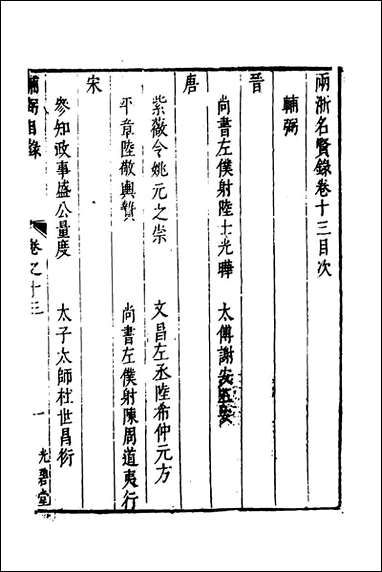 兩浙名賢錄卷十三目次
輔弼
晉
尚書左僕射陸士光曄　太傅謝安石安
唐
紫薇令姚元之崇　文昌左丞陸希仲元方
平章陸敬輿贄　尚書左僕射陳周道夷行
宋
參知政事盛公量度　太子太師杜世昌衍
輔弼目錄　卷之十三　一　光碧堂